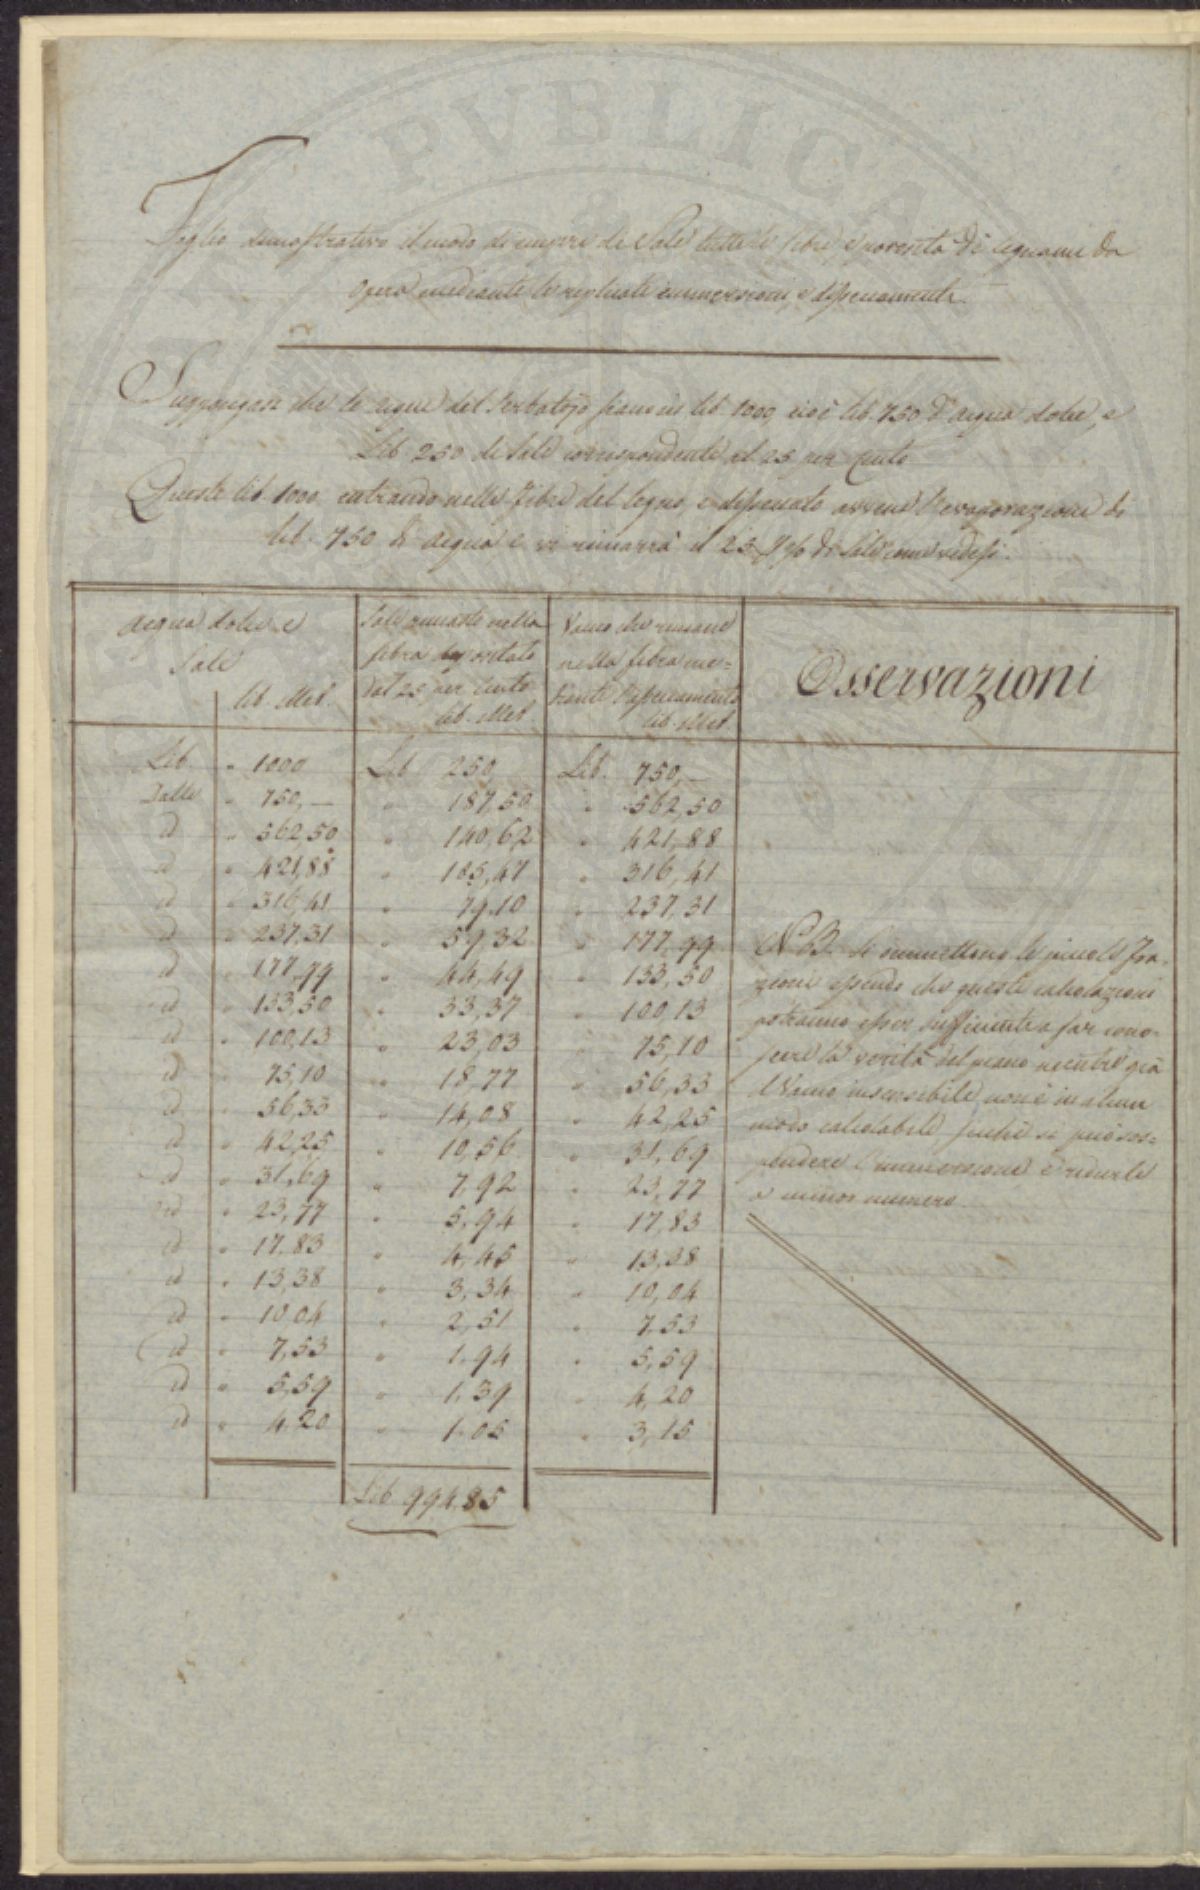 PVBLICA
Foglio dimostrativo il modo di empire di Sale tutte le fibre, e porosità di legnami da
opera mediante le replicate immersioni, e disseccamenti.
Suppongasi che le acque del Serbatojo siano in lib. 1000, cioè lib. 750 d'acqua dolce, e
Lib. 250 di Sale corrispondente al 25 per Cento
Queste lib. 1000 entrando nelle fibre del legno, e disseccato avviene l'evaporazione di
lib. 750 di acqua e vi rimarrà il 25 di Sale come vedesi.
Acqua dolce, e
Sale
lib. Met.
Sale rimasto nella
fibra
dal 25 per Cento
lib. Met.
Vano che rimane
nella fibra me=
diante l'disseccamento
lib. Met.
Osservazioni
Lib. " 1000 Lib 250 Lib. 750,—
Dalle " 750,— " 187,50 " 562,50
id " 562,50 " 140,62 " 421,88
id " 421,88 " 105,47 " 316,41
id " 316,41 " 79.10 " 237,31
id " 237,31 " 59,32 " 177,99
id " 177,99 " 44,49 " 133,50
id " 133,50 " 33,37 " 100,13
id " 100,13 " 23,03 " 75,10
id " 75,10 " 18,77 " 56,33
id " 56,33 " 14,08 " 42,25
id " 42,25 " 10,56 " 31,69
id " 31,69 " 7,92 " 23,77
id " 23,77 " 5,94 " 17,83
id " 17.83 " 4,45 " 13,38
id " 13,38 " 3,34 " 10,04
id " 10 04 " 2,51 " 7,53
id " 7,53 " 1,94 " 5,59
id " 5,59 " 1,39 " 4,20
id " 4.20 " 1.05 " 3,15
Lib 994.85
NB. Si ommettono le piccole fra-
zioni essendo che queste calcolazioni
potranno esser sufficienti a far cono-
scere la verità del piano mentre già
il Vano insensibile non è in alcun
modo calcolabile, si può sos=
pendere l'immersione e ridurle
a minor numero